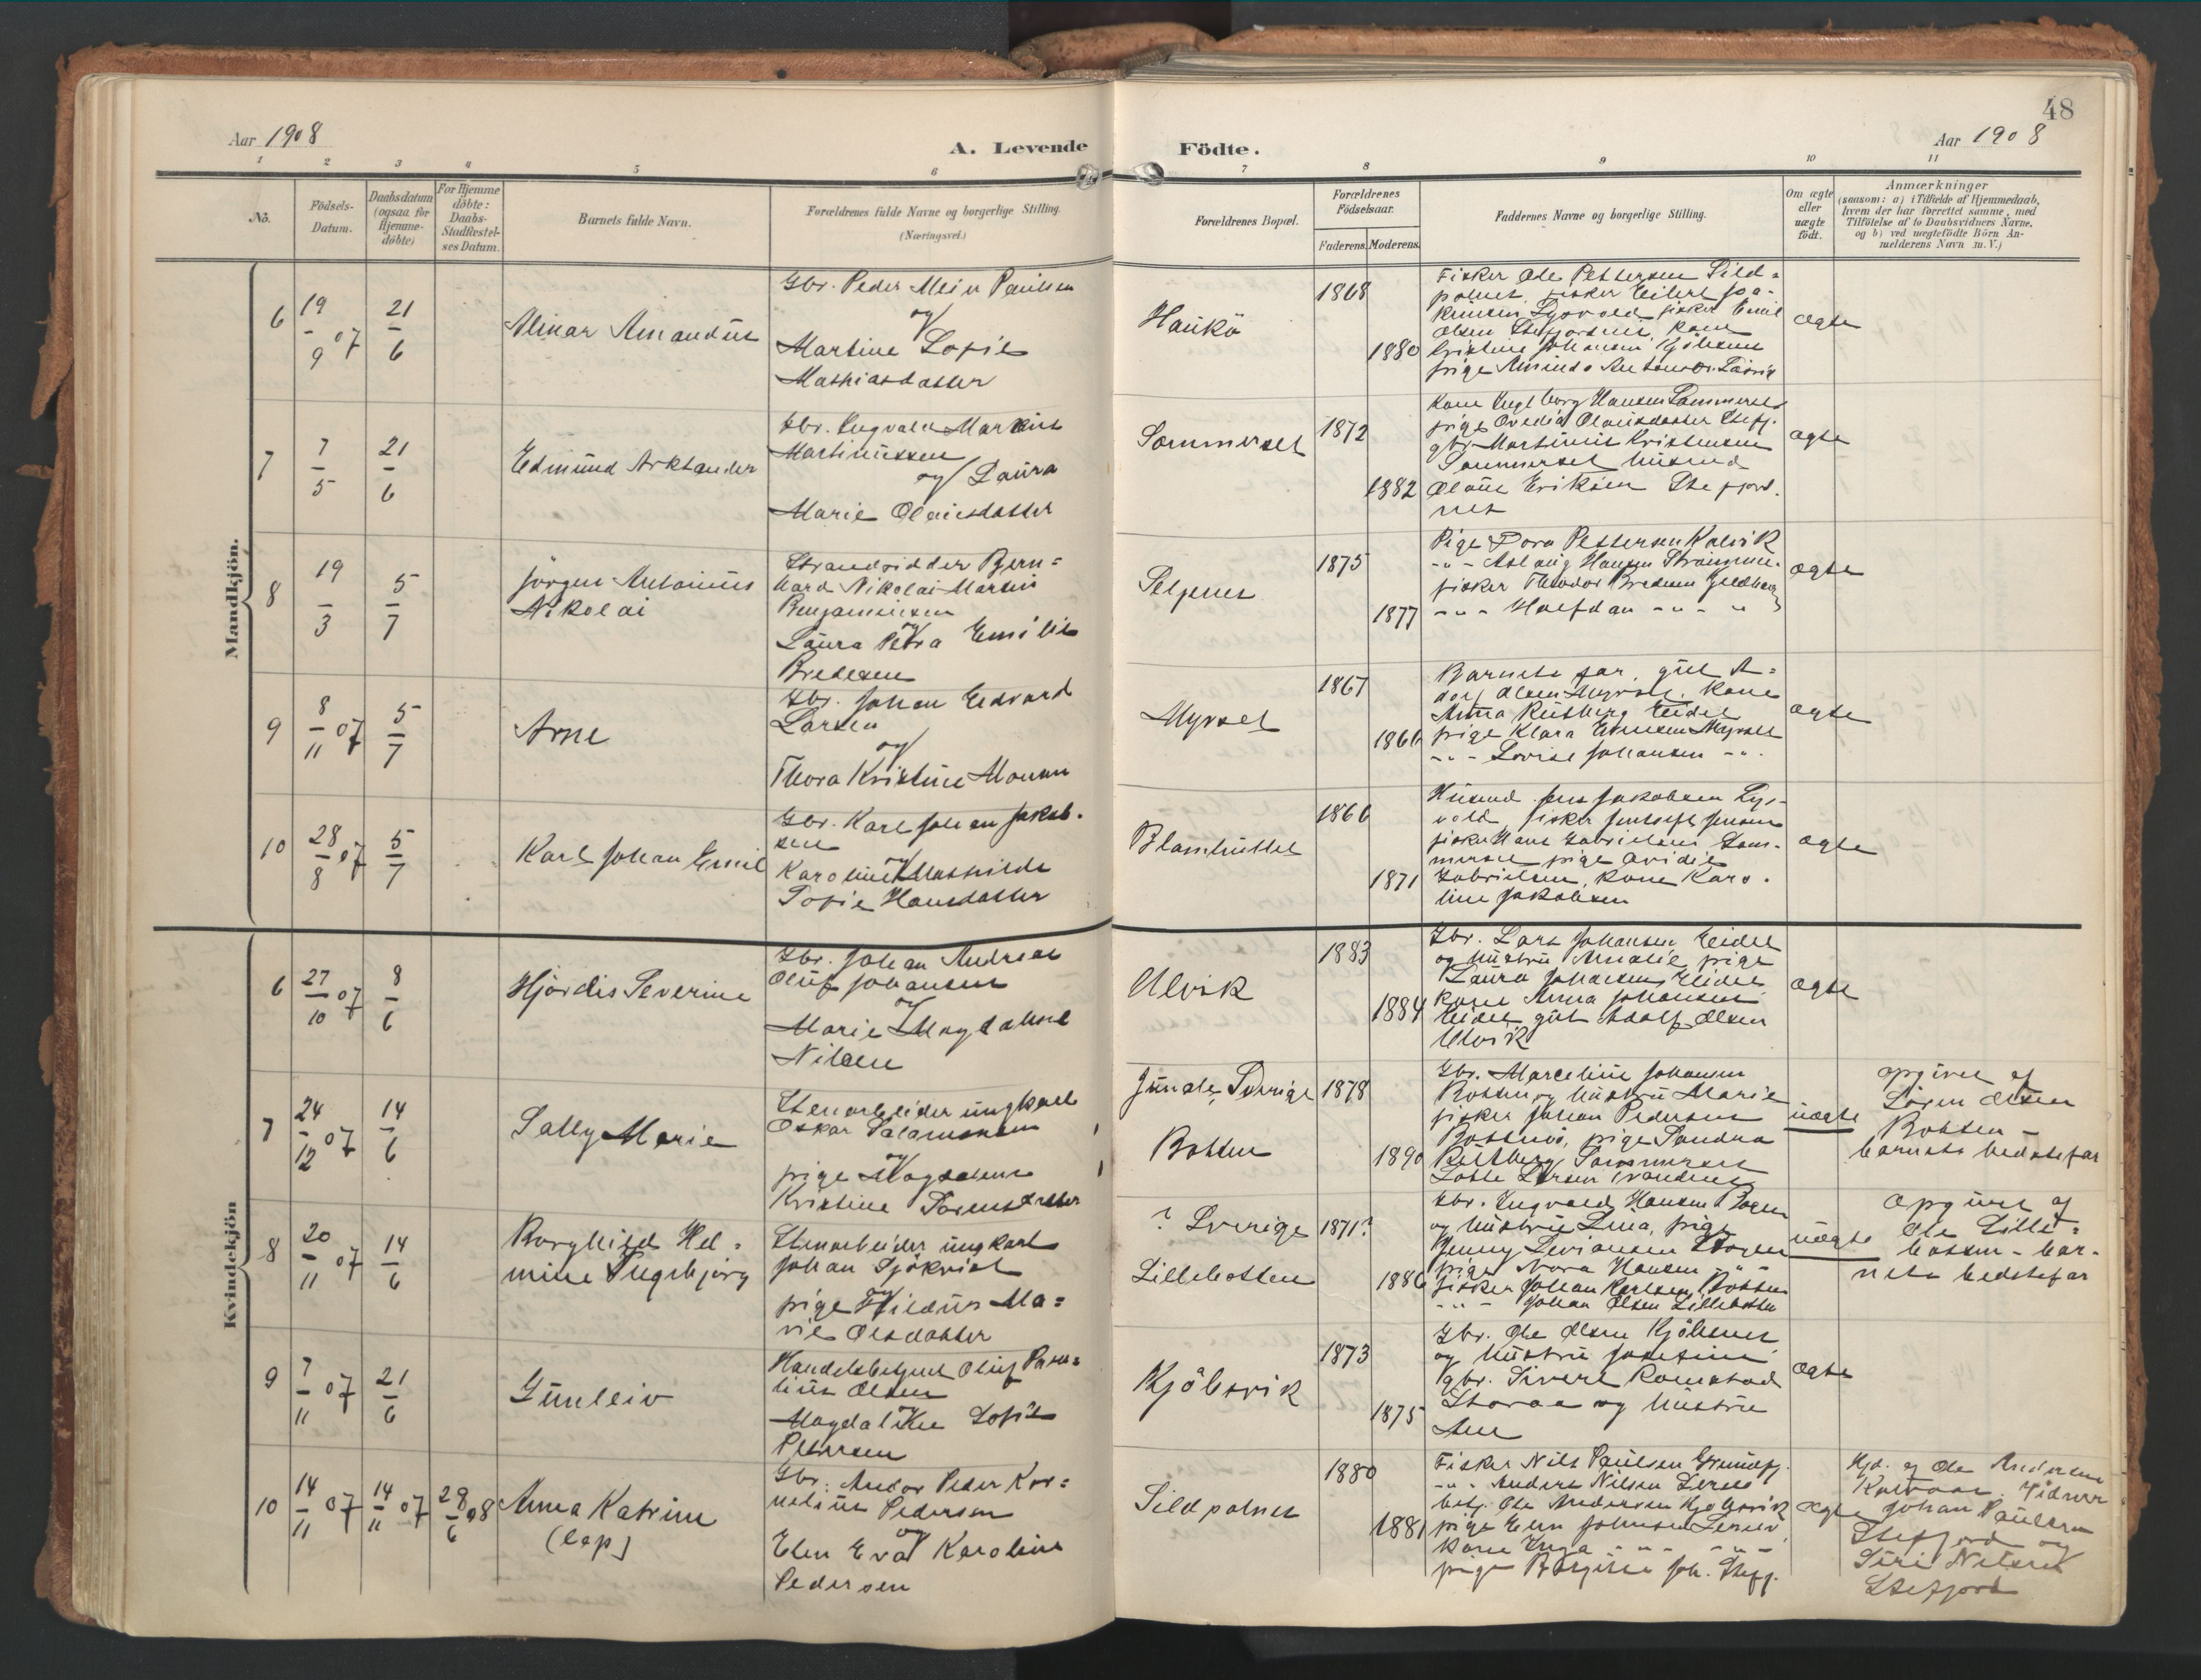 48
Aar 1908
A. Levende
Födte.
Aar 1908
1 2 3 4 5 6 7 8 9 10 11
No.
Födsels-
Datum.
Daabsdatum
(ogsaa för
Hjemme-
döbte)
For Hjemme
döbte:
Daabs-
Stadfæstel-
ses Datum.
Barnets fulde Navn.
Forældrenes fulde Navne og borgerlige Stilling.
(Næringsvei.)
Forældrenes Bopæl.
Forældrenes
Födselsaar.
Faderens. Moderens.
Faddernes Navne og borgerlige Stilling.
Om ægte
eller
uægte
födt.
Anmærkninger
(saasom: a) i Tilfælde af Hjemmedaab,
hvem der har forrettet samme, med
Tilföielse af to Daabsvidners Navne,
og b) ved uægtefödte Börn An-
melderens Navn m. V.)
Mandkjön.
6
19/9 07
21/6
Almar Amandus
Gbr. Peder Meier Paulsen
og
Martine Sofie
Mathiasdatter
Haukö
1868
1880
Fisker Ole Pettersen Sild=
polnes, fisker Eilert Joa-
kimsen Lysvold fisker Emil
Olsen Stefjordnes, kone
Kristine Johansen Kjölsnes
pige Aminda Antonsen
ægte
7
7/5
21/6
Edmund Arktander
Gbr. Ingvald Markus
Martinussen
og Laura
Marie Olausdatter
Sommerset
1872
1882
Kone Ingeborg Hansen Sommerset
pige Ovedia Olausdatter Stefj.
gbr. Martinus Kristensen
Sommerset husmd
Olaus Eriksen Stefjord
nes
ægte
8
19/3
5/7
Jörgen Antonius
Nikolai
Strandsidder Bern=
hard Nikolai Martin
Benjaminsen
og
Laura Petra Emilie
Bredesen
Seljenes
1875
1877
Pige Dora Pettersen Kalvik
-"- Aslaug Hansen
fisker Theodor Bredesen
-"- Halfdan -"- "
ægte
9
8/11 07
5/7
Arne
Gbr. Johan Edvard
Larsen
og
Thora Kristine Monsen
Myrset
1867
1866
Barnets far, gut A=
dolf Olsen Myrset, kone
Anna Rutberg Eidet
pige Klara Myrset
-"- Lovise Johansen -"-
ægte
10
28/8 07
5/7
Karl Johan Emil
Gbr. Karl Johan Jakob-
sen
og
Karoline Mathilde
Sofie Hansdatter
Blamhullet
1866
1871
Husmd Jens Jakobsen Lys-
vold, fisker Jentoft Jensen
fisker Hans Gabrielsen Som-
merset pige Ovidie
Gabrielsen, kone Karo-
line Jakobsen
ægte
Kvindekjön
6
27/10 07
8/6
Hjördis Severine
Gbr. Johan Andreas
Oluf Johansen
og
Marie Magdalene
Nilsen
Ulvik
1883
1884
Gbr. Lars Johansen Eidet
og hustru Amalie, pige
Laura Johansen Eidet
kone Anna Johansen
Eidet, gut Adolf Olsen
Ulvik
ægte
7
24/12 07
14/6
Sally Marie
Stenarbeider ungkarl
Oskar Salamonsen
og
pige Magdalene
Kristine Sörensdatter
Sverige
Botten
1878
1890
Gbr. Marcelius Johansen
Botten og hustru Marie
fisker Johan Pedersen
Bottnes, pige Sandra
Rutberg Sommerset
Lotte Larsen
uægte
opgivet af
Sören Olsen
Botten -
barnets bedstefar
8
20/11 07
14/6
Borghild Hel=
mine Ingebjörg
Stenarbeider ungkarl
Johan Sjökvist
og
pige Hildur Ma=
rie Olsdatter
? Sverige
Lillebotten
1871?
1886
Gbr. Ingvald Hansen Bogen
og hustru Lina, pige
Jenny Bogen
pige Nora Hansen -"-
fisker Johan Karlsen, Botten
-"- Johan Olsen Lillebotten
uægte
opgivet af
Ole Lille=
botten - bar-
nets bedstefar
9
7/11 07
21/6
Gunleiv
Handelsbetjent Oluf Pare=
lius Olsen
og
Magdalene Sofie
Petersen
Kjöbsvik
1873
1875
Gbr. Ole Olsen Kjölsnes
og hustru Josefine
gbr. Sivert Romstad
Storaa og hustru
Ane
ægte
10
14/11 07
14/11 07
28/6 08
Anna Katrine
(lap)
Gbr. Andor Peder Kor=
nelius Pedersen
og
Elen Eva Karoline
Pedersen
Sildpolnes
1880
1881
Fisker Nils Paulsen Grundfj.
-"- Anders Nilsen
betj. Ole Andersen Kjöbsvik
pige Elen Johnsen
kone Inga -"- -"-
pige Joh. Stefj.
ægte
Hjd. af Ole Andersen
Korsnes. Vidner
Johan Paulsen
Stefjord og
Siri Nilsen
Stefjord